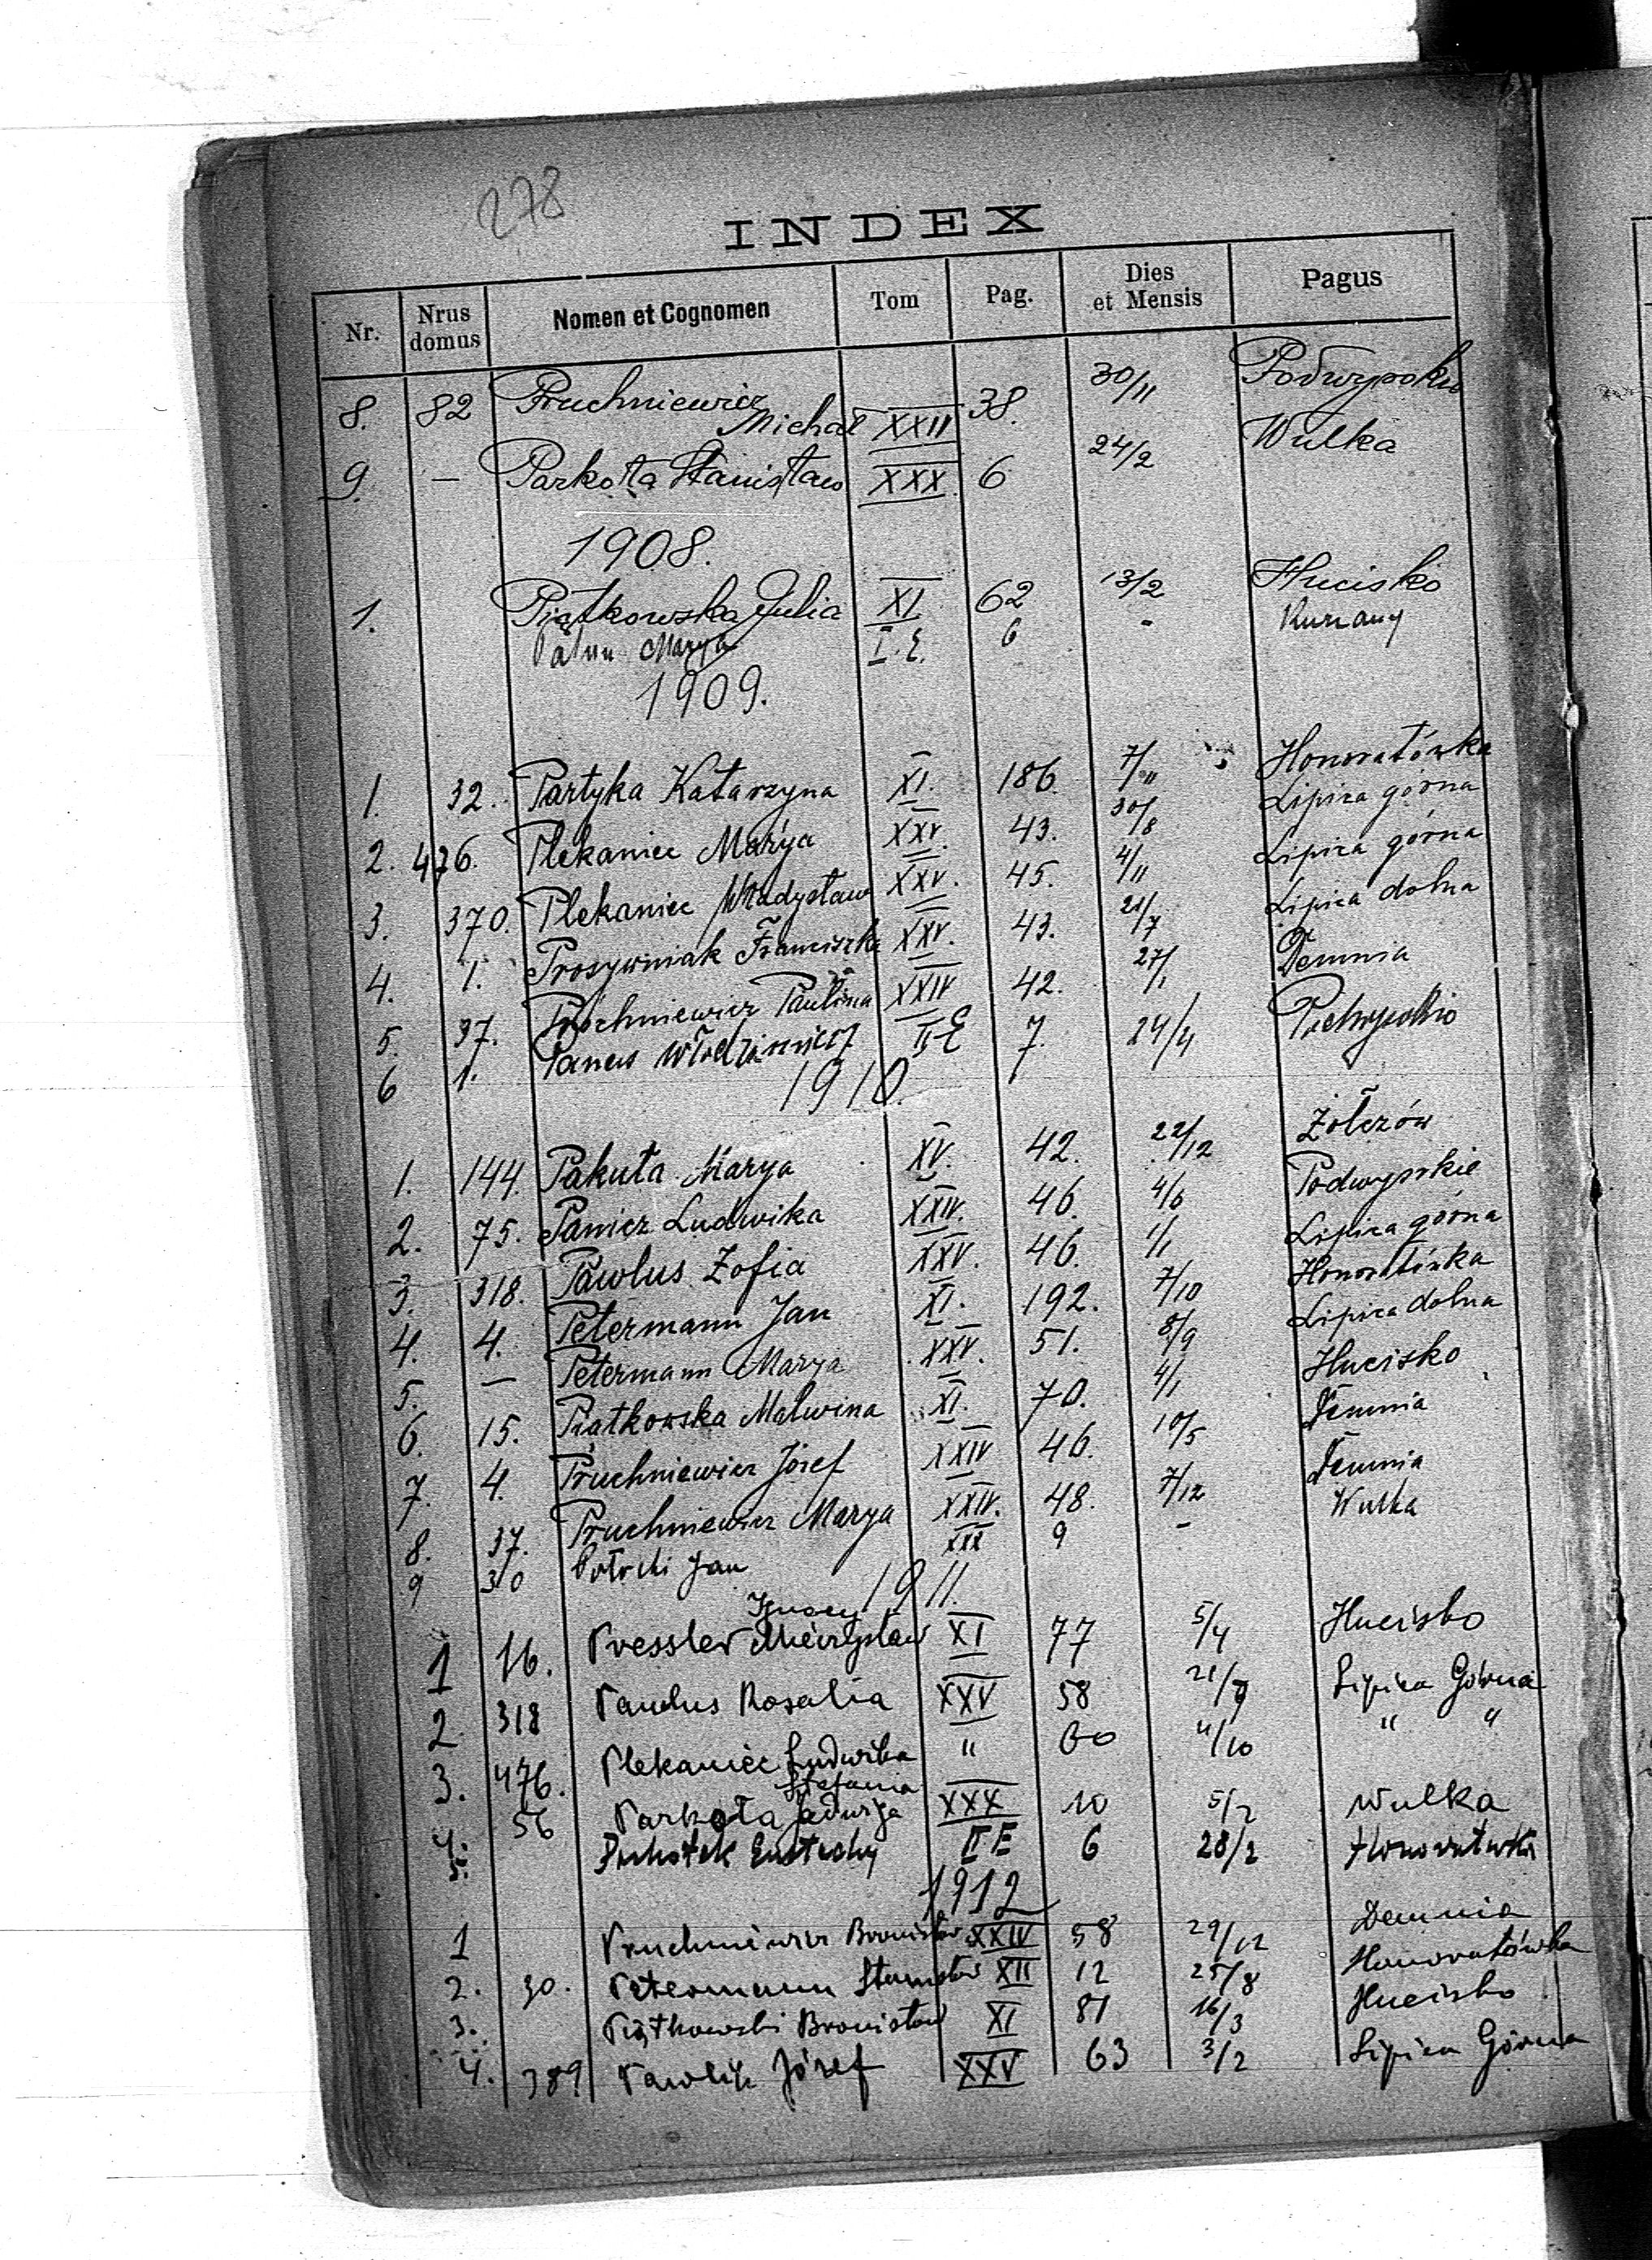 278
INDEX
Nr. Nrus domus Nomen et Cognomen Tom Pag. Dies et Mensis Pagus
8. 82 Pruchniewicz Michał XXIV 38. 30/11 Podwysokie
9. — Parkota Stanisław XXX. 6 24/2 Wulka
1908.
1. Piątkowska Julia XI 62 13/2 Hucisko
Marya I.E. 6 - Kurzany
1909.
1. 32. Partyka Katarzyna XI. 186. 7/11 Honoratówka
2. 476. Plekaniec Marya XXV. 43. 30/8 Lipica górna
3. 370. Plekaniec Władysław XXV. 45. 4/11 Lipica górna
4. 1. Prosywniak Franciszka XXV. 43. 21/7 Lipica dolna
5. 37. Pruchniewicz Paulina XXIV 42. 27/1 Demnia
6 1. Panas Włodzimierz II E 7. 24/4
1910.
1. 144. Pakuta Marya XV. 42. 22/12 Żołczów
2. 75. Panicz Ludwika XXIV. 46. 4/6 Podwysokie
3. 318. Pawlus Zofia XXV. 46. 1/1 Lipica górna
4. 4. Petermann Jan XI. 192. 7/10 Honoratówka
5. — Petermann Marya XXV. 51. 8/9 Lipica dolna
6. 15. Piątkowska Malwina XI. 70. 4/1 Hucisko
7. 4. Pruchniewicz Józef XXIV 46. 10/5 Demnia
8. 37. Pruchniewicz Marya XXIV. 48. 7/12 Demnia
9 30 Potocki Jan XXX 9 - Wulka
1911.
Ignacy
1 16. Pressler Mieczysław XI 77 5/4 Hucisko
2. 318 Pawlus Rosalia XXV 58 21/7 Lipica Górna
3. 476. Plekaniec Ludwika Stefania " 60 4/10 " "
4. 56 Parkota Jadwiga XXX 10 5/2 Wulka
5. Eustachy II E 6 28/2 Honoratówka
1912
1 Pruchniewicz Bronisław XXIV 58 29/12 Demnia
2. 30. Petermann Stanisław XII 12 25/8 Honoratówka
3. Piątkowski Bronisław XI 81 16/3 Hucisko
4. 389 Pawlik Józef XXV 63 3/2 Lipica Górna